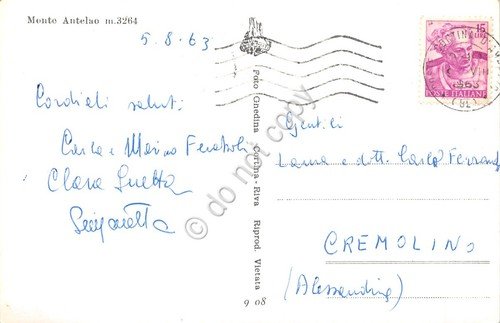 Monte Antelao m.3264
5.8.63
Cordiali saluti
Carla e Marino
Clara
Foto Ghedina Cortina - Riva Riprod. Vietata
9 08
15
POSTE ITALIANE
1963
(BL)
Gentili
Laura e dott. Carlo Ferrando
CREMOLINO
(Alessandria)
© do not copy